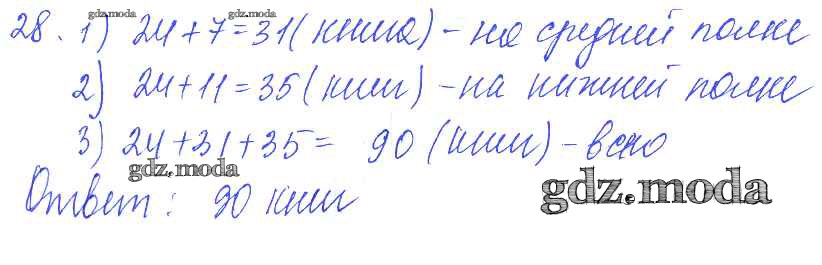 gdz.moda gdz.moda
28. 1) 24+7=31 (книга) - на средней полке
2) 24+11=35 (книг) - на нижней полке
3) 24+31+35= 90 (книг) - всего
gdz.moda
Ответ: 90 книг
gdz.moda